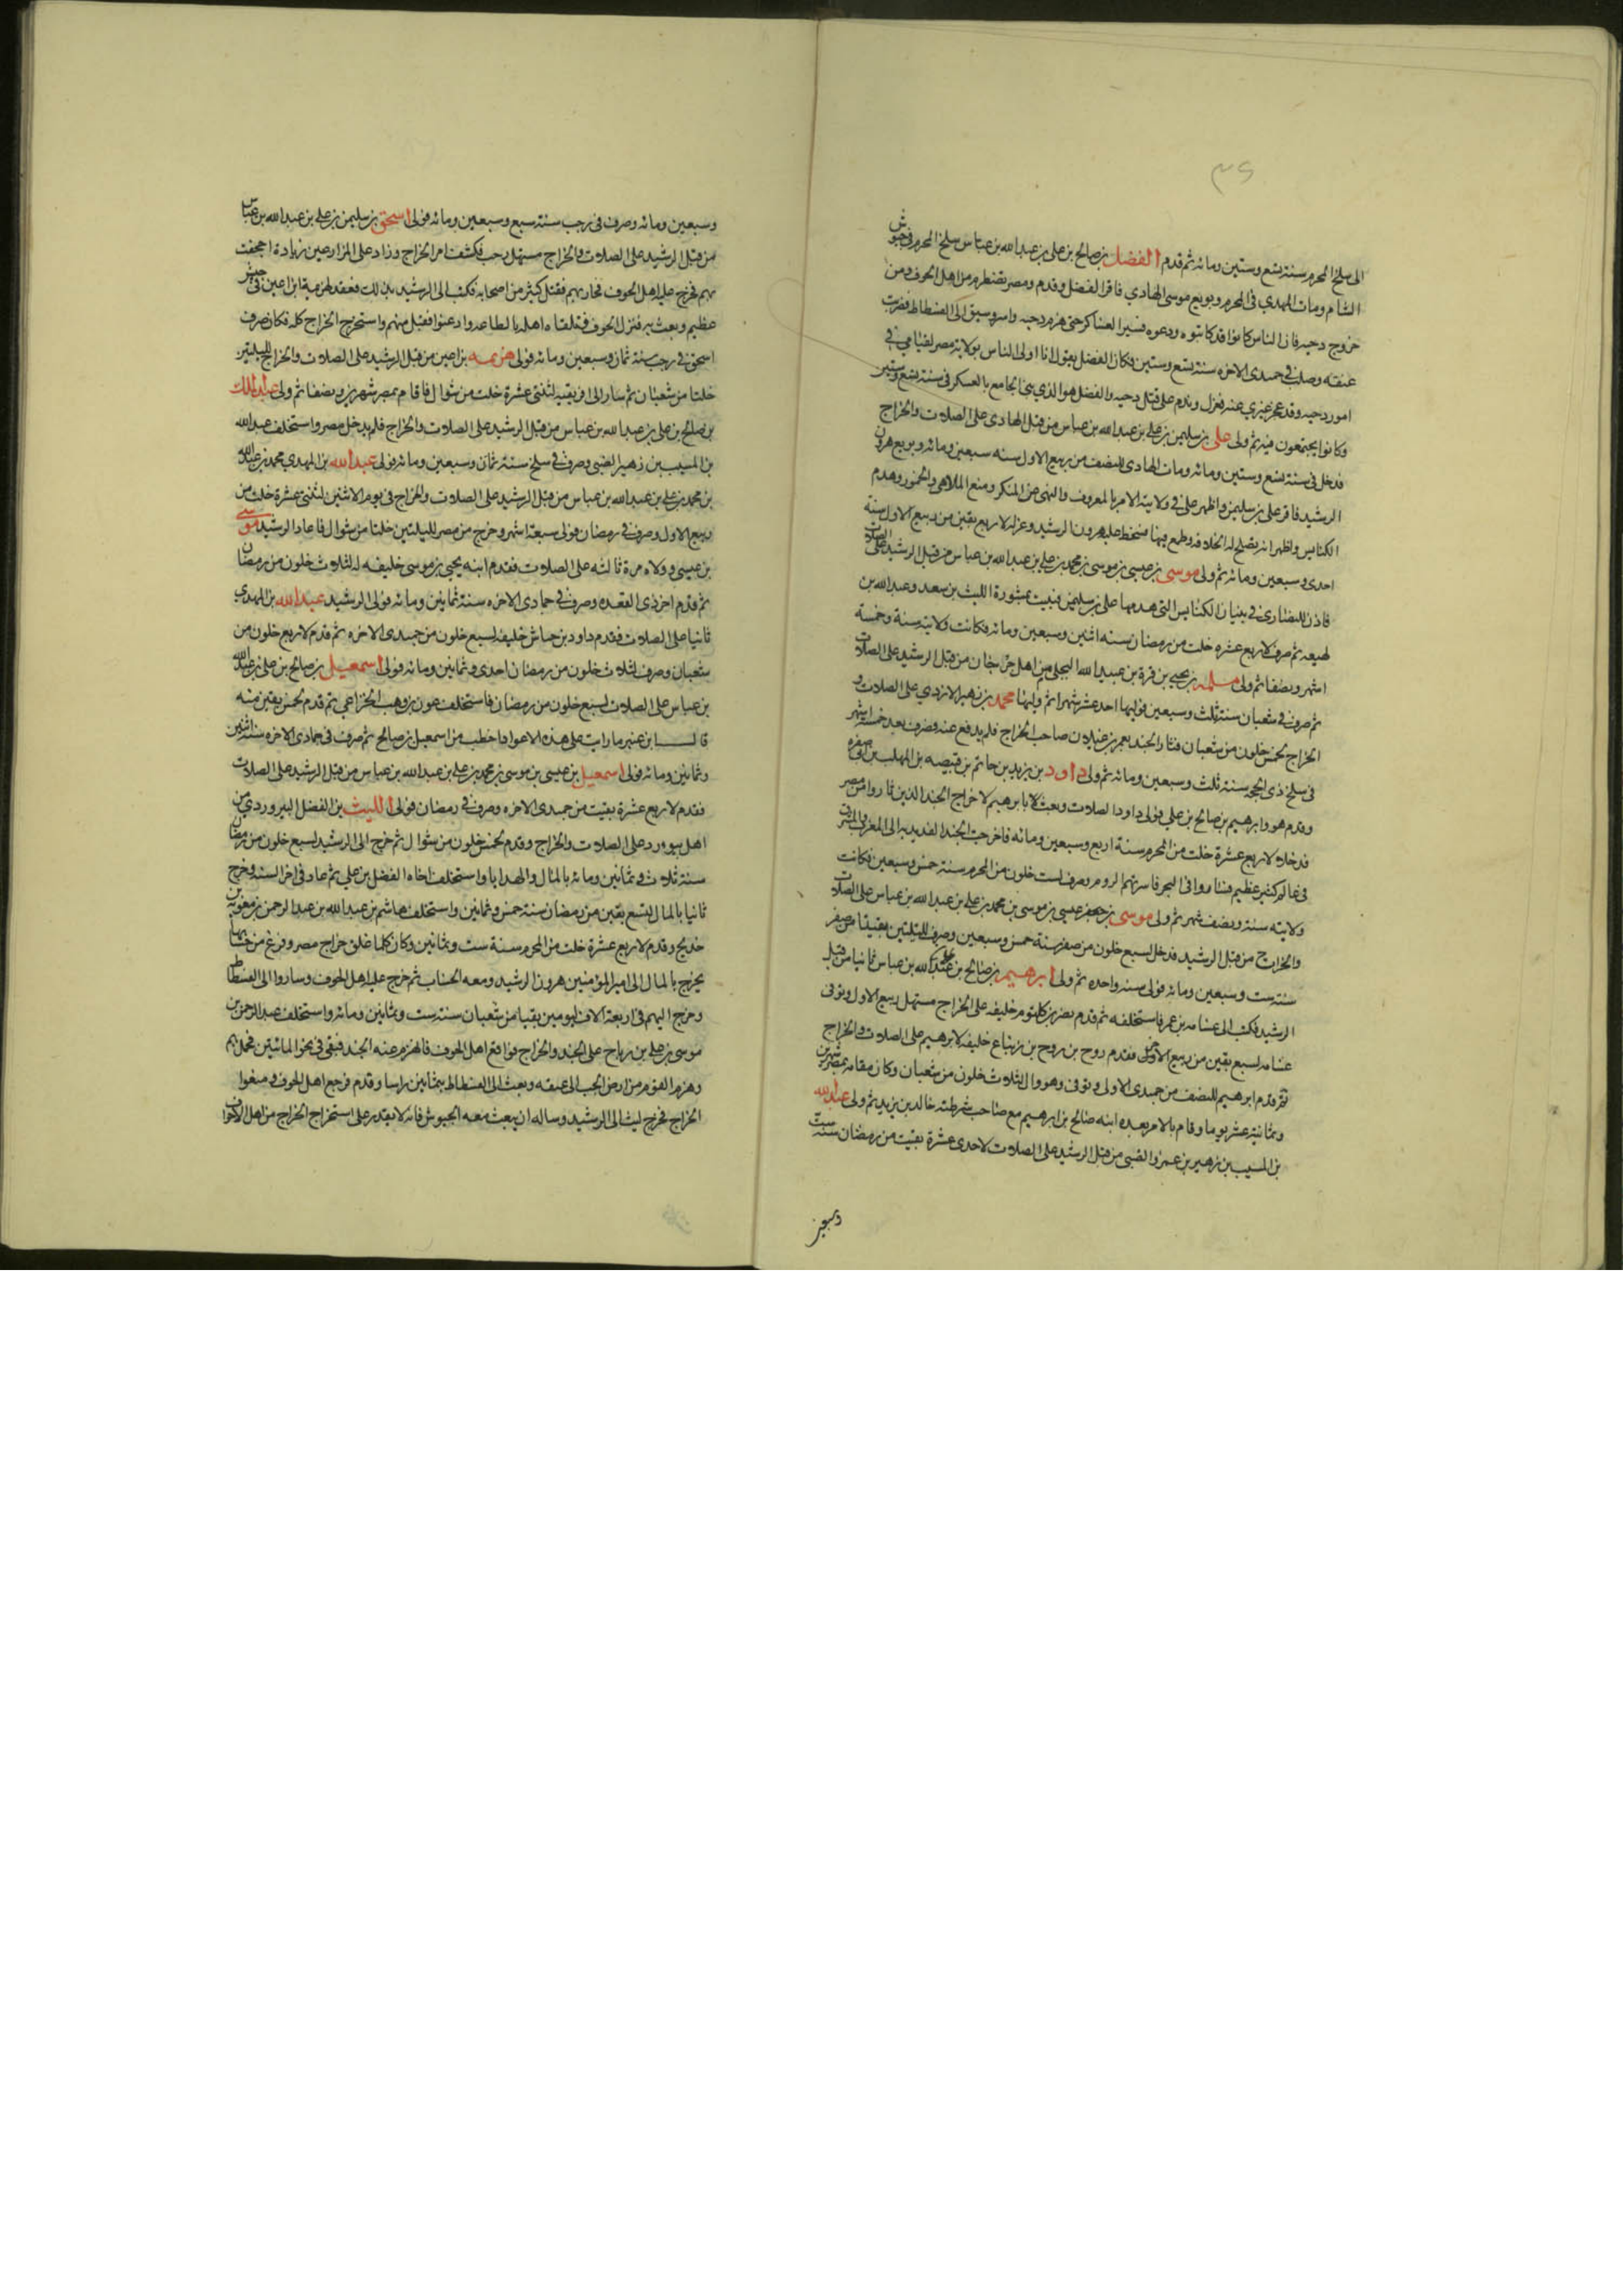 ٣٤
الى سلخ المحرم سنة تسع وستين ومائه ثم قدم الفضل بن صالح بن على بن عبدالله بن عباس سلخ المحرم فى جيوش
الشام ومات المهدي فى المحرم وبويع موسى الهادي فاقر الفضل وقدم ومصر تضطرم من اهل الحوف ومن
خروج دحيه فان الناس كانوا قد كاتبوه ودعوه فسير العساكر حتى هزم دحيه واسر وسيق الى الفسطاط فضرب
عنقه وصلب فى جمدى الاخره سنة تسع وستين فكان الفضل يقول انا اولى الناس بولاية مصر لقيامي فى
امور دحيه وقد عجز غيري عنه فعزل وندم على قتل دحيه والفضل هو الذي بنى الجامع بالعسكر فى سنة تسع وستين
وكانوا يجتمعون فيه ثم ولى على بن سليمن بن على بن عبدالله بن عباس من قبل الهادى على الصلات والخراج
فدخل فى سنة تسع وستين ومائه ومات الهادى للنصف من ربيع الاول سنه سبعين ومائه وبويع هرون
الرشيد فاقر على بن سليمن واظهر على فى ولايته الامر بالمعروف والنهى عن المنكر ومنع الملاهى والخمور وهدم
الكنايس واظهر انه يصلح له الخلافه وطمع فيها فسخط عليه هرون الرشيد وعزله لاربع بقين من ربيع الاول سنة
احدى وسبعين ومائه ثم ولى موسى بن عيسى بن موسى بن محمد بن على بن عبدالله بن عباس من قبل الرشيد على الصلات
فاذن للنصارى فى بنيان الكنايس التى هدمها على بن سليمن فبنيت بمشورة الليث بن سعد وعبدالله بن
لهيعه ثم صرف لاربع عشره خلت من رمضان سنه اثنين وسبعين ومائه فكانت ولايته سنة وخمسة
اشهر ونصفا ثم ولى مسلمه بن يحيى بن قرة بن عبيد الله البجلى من اهل جرجان من قبل الرشيد على الصلات
ثم صرف فى شعبان سنة ثلث وسبعين فوليها احد عشر شهرا ثم وليها محمد بن زهير الازدي على الصلات و
الخراج لخمس خلون من شعبان فثار الجند بعمر بن غيلان صاحب الخراج فلم يدفع عنه فصرف بعد خمسة اشهر
فى سلخ ذى الحجه سنة ثلث وسبعين ومائه ثم ولى داود بن يزيد بن حاتم بن قبيصه بن المهلب بن ابى صفره
وقدم هو وابرهيم بن صالح بن علي فولى داود الصلات وبعث بابرهيم لاخراج الجند الذين ثاروا من مصر
فدخلا لاربع عشرة خلت من المحرم سنة اربع وسبعين ومائه فاخرجت الجند القديديه الى المغرب والشرق
فى عالم كثير عظيم فساروا فى البحر فاسرتهم الروم وصرف لست خلون من المحرم سنة خمس وسبعين فكانت
ولايته سنة ونصف شهر ثم ولى موسى بن عيسى بن موسى بن محمد بن على بن عبدالله بن عباس على الصلات
والخراج من قبل الرشيد فدخل لسبع خلون من صفر سنة خمس وسبعين وصرف لليلتين بقيتا من صفر
سنة ست وسبعين ومائه فولى سنه واحده ثم ولى ابرهيم بن صالح بن على بن عبدالله بن عباس ثانيا من قبل
الرشيد فكتب الى عسامه بن عمر فاستخلفه ثم قدم نصر بن كلثوم خليفه على الخراج مستهل ربيع الاول وتوفى
عسامه لسبع بقين من ربيع الاخر فقدم روح بن روح بن زنباع خليفه لابرهيم على الصلات والخراج
ثم قدم ابرهيم للنصف من جمدى الاولى وتوفى وهو وال لثلاث خلون من شعبان وكان مقامه بمصر شهرين
وثمانية عشر يوما وقام بالامر بعده ابنه صالح بن ابرهيم مع صاحب شرطته خالد بن يزيد ثم ولى عبدالله
بن المسيب بن زهير بن عمرو الضبى من قبل الرشيد على الصلات لاحدى عشرة بقيت من رمضان سنة ست
وسبعين
وسبعين ومائه وصرف فى رجب سنة سبع وسبعين ومائه فولى اسحق بن سليمن بن على بن عبدالله بن عباس
من قبل الرشيد على الصلات والخراج مستهل رجب فكشف امر الخراج وزاد على المزارعين زيادة اجحفت
بهم فخرج عليه اهل الحوف فحاربهم فقتل كثير من اصحابه فكتب الى الرشيد بذلك فعقد لهرثمة ابن اعين فى جيش
عظيم وبعث به فنزل الحوف فتلقاه اهله بالطاعه واذعنوا فقبل منهم واستخرج الخراج كله فكان صرف
اسحق فى رجب سنة ثمان وسبعين ومائه فولى هرثمه بن اعين من قبل الرشيد على الصلات والخراج لليلتين
خلتا من شعبان ثم سار الى افريقيه لثنتى عشرة خلت من شوال فاقام بمصر شهرين ونصفا ثم ولى عبدالملك
بن صالح بن على بن عبدالله بن عباس من قبل الرشيد على الصلات والخراج فلم يدخل مصر واستخلف عبدالله
بن المسيب بن زهير الضبى وصرف فى سلخ سنة ثمان وسبعين ومائه فولى عبيدالله بن المهدي محمد بن عبدالله
بن محمد بن على بن عبدالله بن عباس من قبل الرشيد على الصلات والخراج فى يوم الاثنين لثنتى عشرة خلت من
ربيع الاول وصرف فى رمضان فولى سبعة اشهر وخرج من مصر لليلتين خلتا من شوال فاعاد الرشيد موسى
بن عيسى وولاه مرة ثالثه على الصلات فقدم ابنه يحيى بن موسى خليفه له لثلاث خلون من رمضان
ثم قدم اخر ذى القعده وصرف فى جمادى الاخره سنة ثمانين ومائه فولى الرشيد عبيدالله بن المهدى
ثانيا على الصلات فقدم داود بن حباش خليفه لسبع خلون من جمدى الاخره ثم قدم لاربع خلون من
شعبان وصرف لثلاث خلون من رمضان احدى وثمانين ومائه فولى اسمعيل بن صالح بن على بن عبدالله
بن عباس على الصلات لسبع خلون من رمضان فاستخلف عون بن وهب الخزاعي ثم قدم لخمس بقين منه
قال ابن عفير ما رايت على هذه الاعواد اخطب من اسمعيل بن صالح ثم صرف فى جمادى الاخره سنة اثنين
وثمانين ومائه فولى اسمعيل بن عيسى بن موسى بن محمد بن على بن عبدالله بن عباس من قبل الرشيد على الصلات
فقدم لاربع عشرة بقيت من جمدى الاخره وصرف فى رمضان فولى الليث بن الفضل البيروردي من
اهل بيورد على الصلات والخراج وقدم لخمس خلون من شوال ثم خرج الى الرشيد لسبع خلون من رمضان
سنة ثلاث وثمانين ومائه بالمال والهدايا واستخلف اخاه الفضل بن على ثم عاد فى اخر السنه وخرج
ثانيا بالمال لتسع بقين من رمضان سنة خمس وثمانين واستخلف هاشم بن عبدالله بن عبدالرحمن بن معويه بن
خديج وقدم لاربع عشرة خلت من المحرم سنة ست وثمانين وكان كلما غلق خراج مصر وفرغ من حسابها
يخرج بالمال الى امير المؤمنين هرون الرشيد ومعه الحساب ثم خرج عليه اهل الحوف وساروا الى الفسطاط
وخرج اليهم فى اربعة الاف ليومين بقيا من شعبان سنة ست وثمانين ومائه واستخلف عبدالرحمن بن
موسى بن على بن رباح على الجند والخراج فواقع اهل الحوف فانهزم عنه الجند فبقى فى نحو المائتين فحمل بهم
وهزم القوم من ارض الجب الى غيفه وبعث الى الفسطاط بثمانين راسا وقدم فرجع اهل الحوف ومنعوا
الخراج فخرج ليث الى الرشيد وساله ان يبعث معه الجيوش فانه لا يقدر على استخراج الخراج من اهل الاحواف